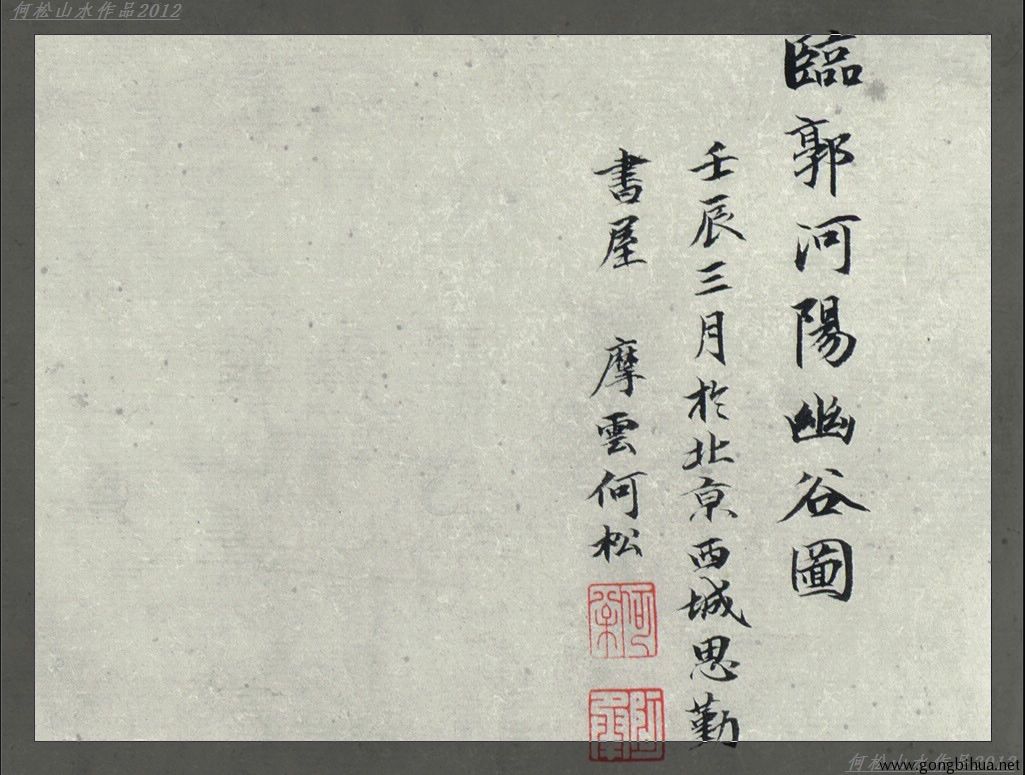 何松山水作品2012
臨郭河陽幽谷圖
壬辰三月於北京西城思勤
書屋 摩雲何松
何松山水作品2012
www.gongbihua.net